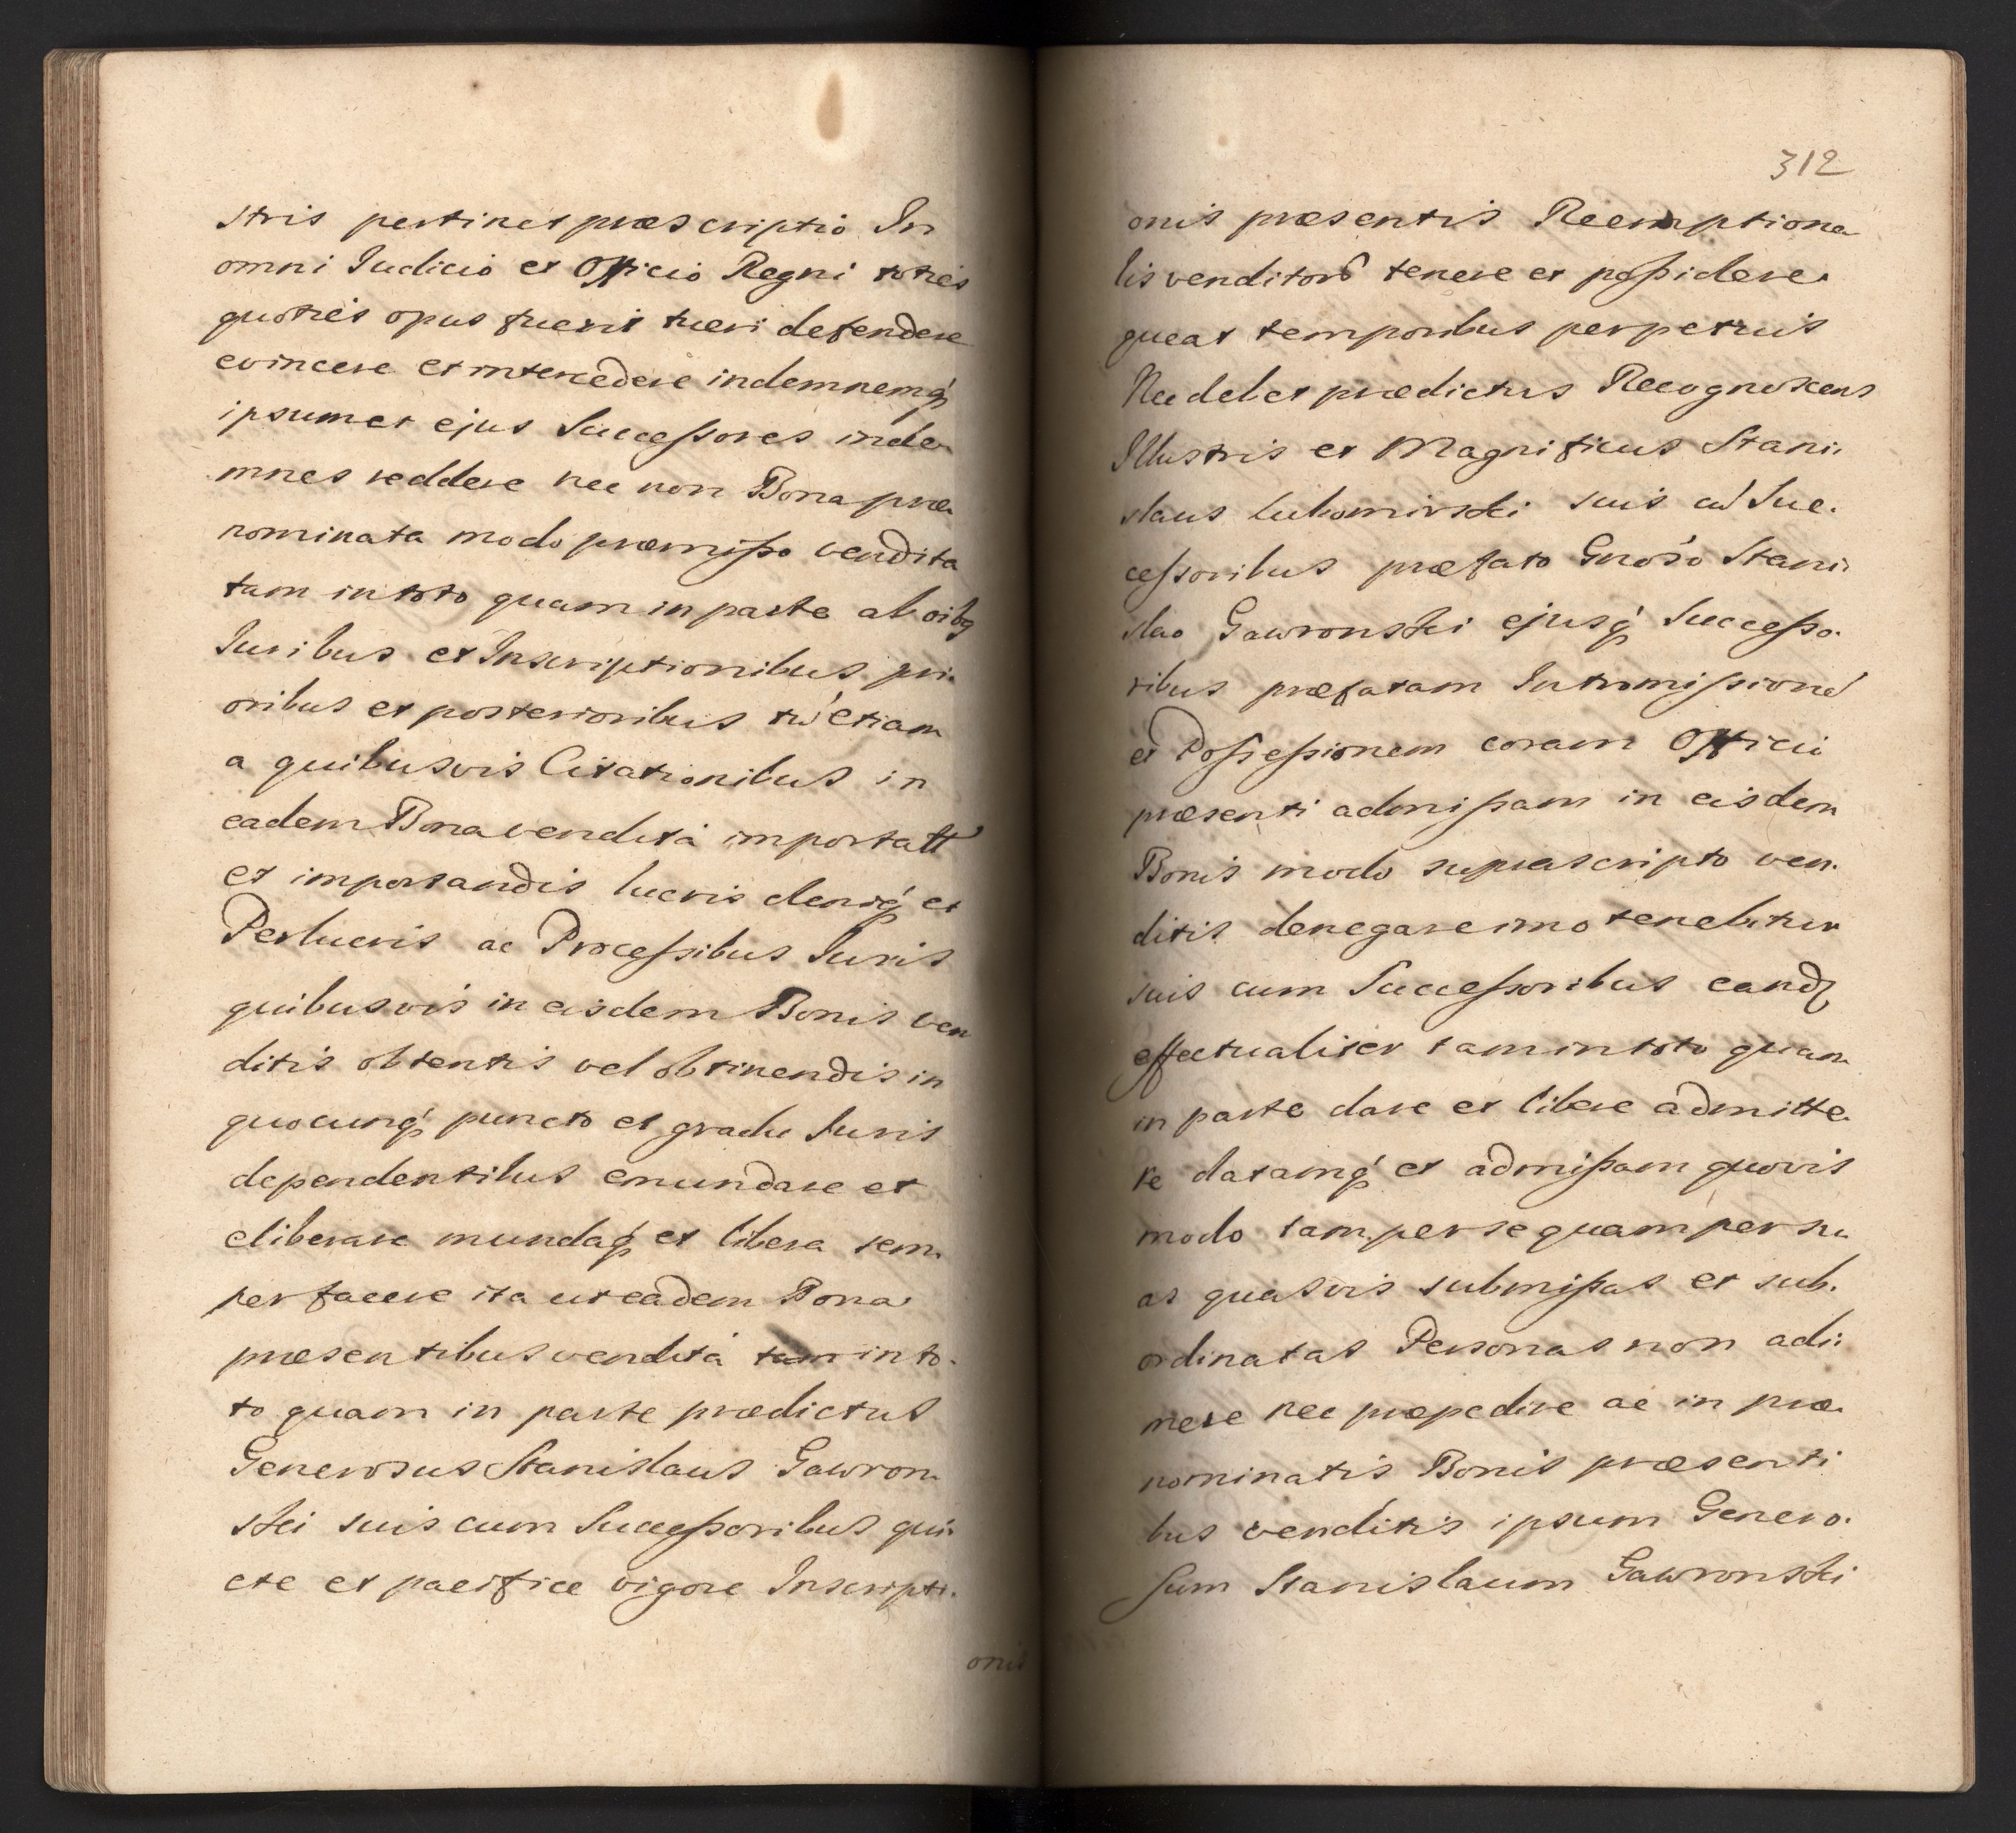 stris pertinet præscriptio In
omni Iudicio et Officio Regni toties
quoties opus fuerit tueri defendere
evincere et intercedere indemnemq́
ipsum et ejus Successores inde
mnes reddere nec non Bona præ
nominata modo præmisso vendita
tam in toto quam in parte ab oibq
Iuribus et Inscriptionibus pri
oribus et posterioribus tú etiam
a quibusvis Citationibus in
eadem Bona vendita importatt
et importandis lucris deniq́ et
Perlucris ac Processibus Iuris
quibusvis in eisdem Bonis ven
ditis obtentis vel obtinendis in
quocunq́ puncto et gradu Iuris
dependentibus emundare et
eliberare mundaq́ et libera sem
per facere ita ut eadem Bona
præsentibus vendita tam in to
to quam in parte prædictus
Generosus Stanislaus Gawron
ski suis cum Successoribus qui
ete et pacifice vigore Inscripti
onis
312
onis præsentis Reemptiona
lis venditors tenere et possidere
queat temporibus perpetuis
Nec debet prædictus Recognoscens
Illustris et Magnificus Stani
slaus Lubomirski suis cú Suc
cessoribus præfato Gnośo Stani
slao Gawronski ejusq́ Successo
ribus præfatam Intromissioné
et Possessionem coram Officio
præsenti admissam in eisdem
Bonis modo suprascripto ven
ditis denegare imo tenebitur
suis cum Successoribus eand
effectualiter tam in toto quam
in parte dare et libere admitte
re datamq́ et admissam quovis
modo tam per se quam per su
as quasvis submissas et sub
ordinatas Personas non adi
mere nec præpedire ac in præ
nominatis Bonis præsenti
bus venditis ipsum Genero
sum Stanislaum Gawronski